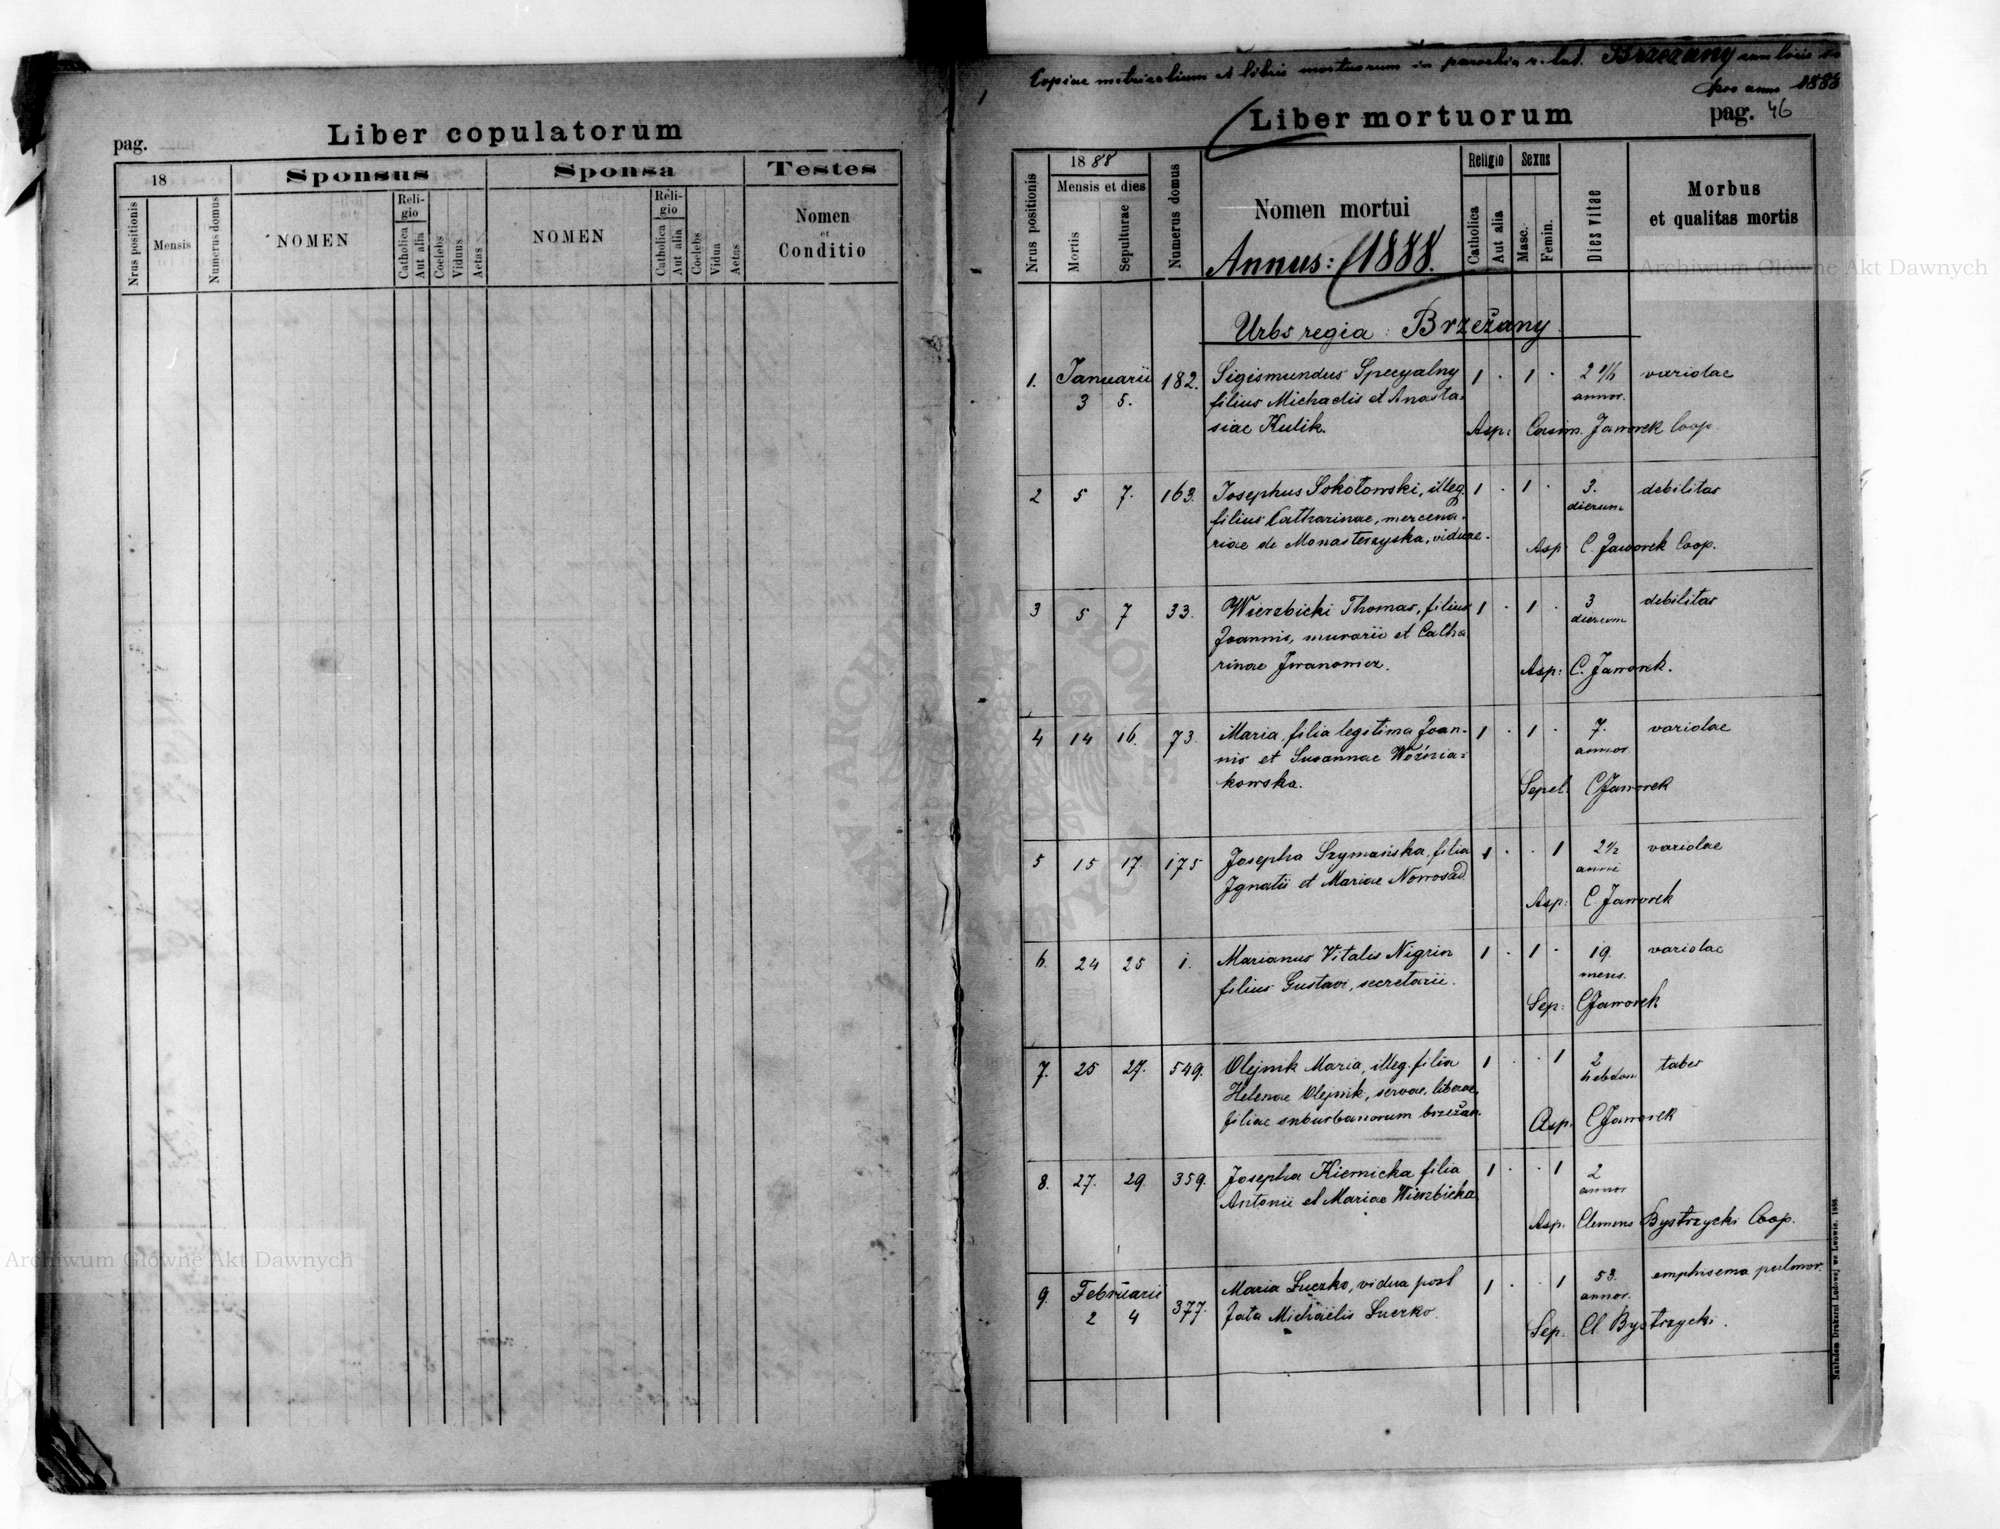 pag.
Liber copulatorum
18
Sponsus
Sponsa
Testes
Nrus positionis
Mensis
Numerus domus
NOMEN
Religio
Catholica
Aut alia
Coelebs
Viduus
Aetas
NOMEN
Religio
Catholica
Aut alia
Coelebs
Vidua
Aetas
Nomen
et
Conditio
Copiae metricalium et libris mortuorum in parochia r. lat. Brzeżany
pro anno 1888
1
Liber mortuorum
pag. 46
Nrus positionis
1888
Mensis et dies
Mortis
Sepulturae
Numerus domus
Nomen mortui
Annus: 1888.
Religio
Catholica
Aut alia
Sexus
Masc.
Femin.
Dies vitae
Morbus
et qualitas mortis
Urbs regia: Brzeżany
1. Januarii 182. Sigismundus Specyalny 1 · 1 · 2 1/2 variolae
3 5. filius Michaelis et Anasta- annor.
siae Kulik. Asp: Casim. Jaworek Coop.
2 5 7. 163. Josephus Sokołowski, illeg. 1 · 1 · 3. debilitas
filius Catharinae, mercena- dierum
riae de Monasterzyska, viduae. Asp C. Jaworek Coop.
3 5 7 33. Wierzbicki Thomas, filius 1 · 1 · 3 debilitas
Joannis, murarii et Catha dierum
rinae Jwanowicz. Asp: C. Jaworek.
4 14 16. 73. Maria, filia legitima Joan- 1 · 1 · 7. variolae
nis et Susannae Woźnia= annor
kowska. Sepel. C Jaworek
5 15 17 175 Josepha Szymańska, filia 1 · · 1 2 1/2 variolae
Jgnatii et Mariae Nowosad. annii
Asp: C Jaworek
6. 24 25 1. Marianus Vitalis Nigrin 1 · 1 · 19. variolae
filius Gustavi, secretarii. mens.
Sep: C Jaworek
7. 25 27. 549. Olejnik Maria, illeg. filia 1 · · 1 2 tabes
Helenae Olejnik, servae, liberae, hebdom
filiae suburbanorum brzeżan. Asp. C Jaworek
8. 27. 29. 359. Josepha Kiernicka filia 1 · · 1 2
Antonii et Mariae Wierzbicka annor
Asp. Clemens Bystrzycki Coop.
9. Februarii 377. Maria Łuczko, vidua post 1 · · 1 58. emphisema pulmor.
2 4 fata Michaëlis Łuczko. annor.
Sep. Cl. Bystrzycki.
Nakładem Drukarni Ludowej we Lwowie. 1888.
Archiwum Główne Akt Dawnych
Archiwum Główne Akt Dawnych